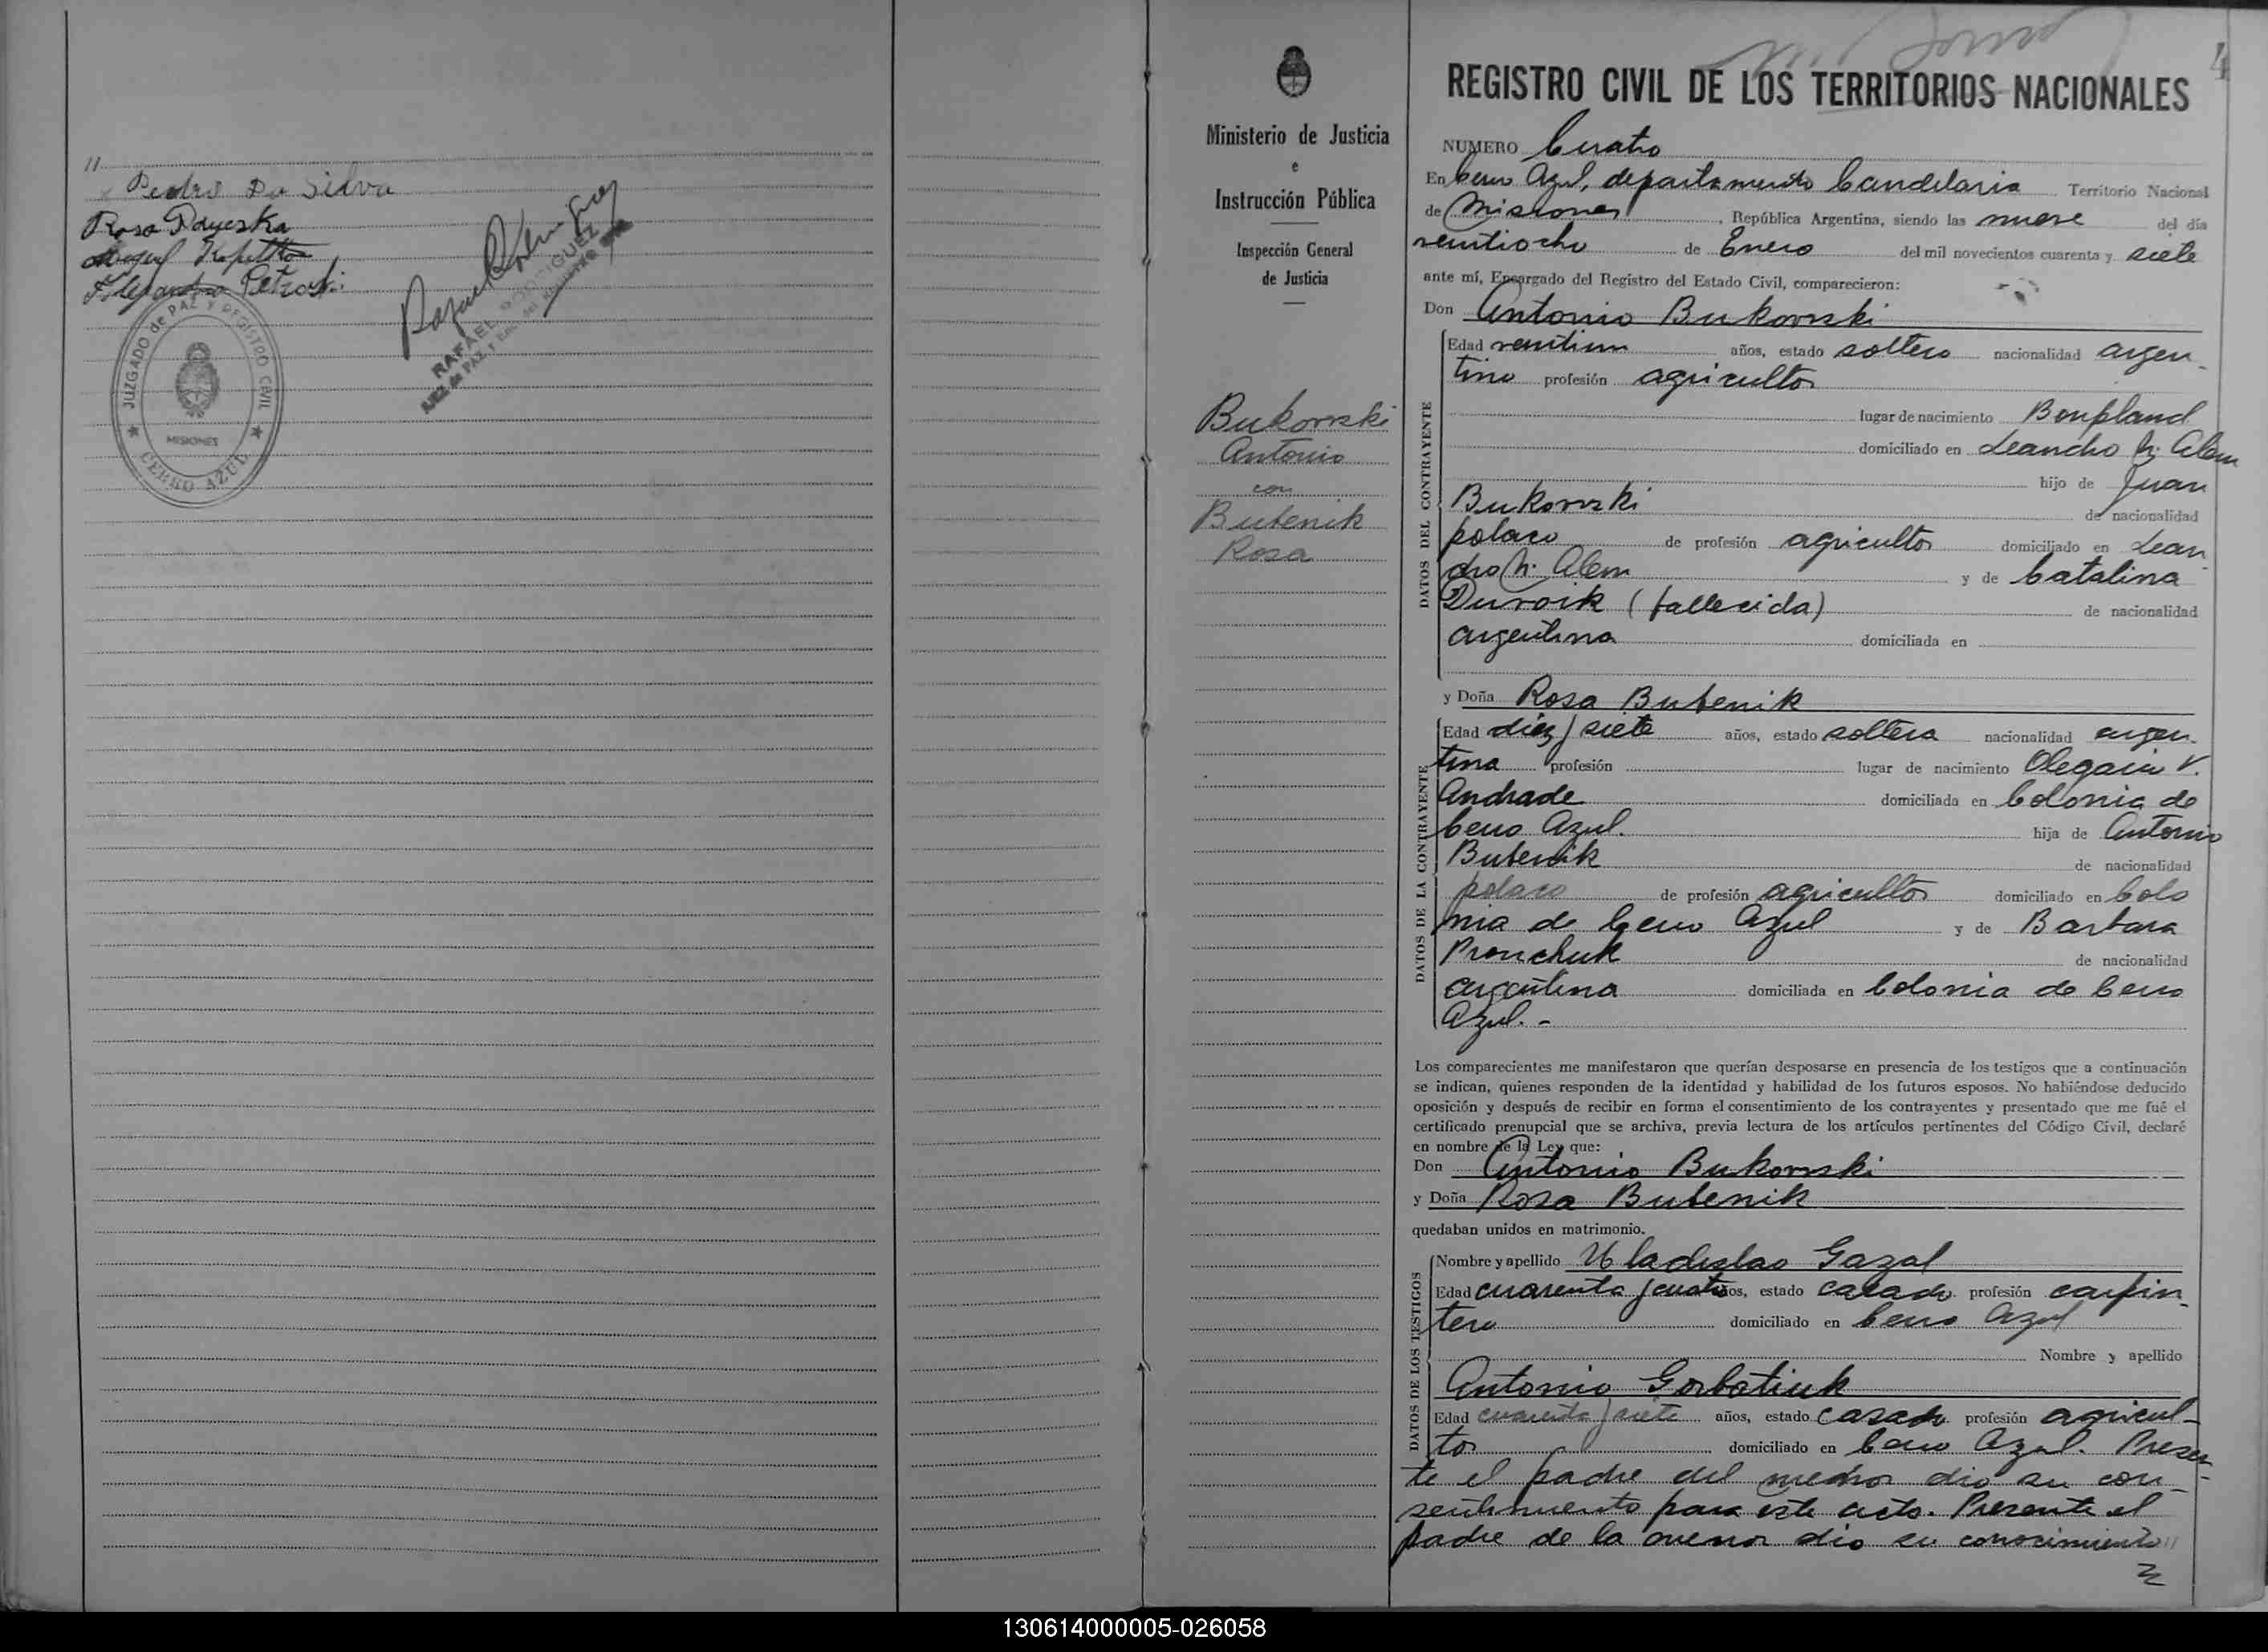 //
Pedro Da Silva
Rosa Dayeska
Miguel
Alejandro Petroski
JUZGADO de PAZ Y REGISTRO CIVIL
MISIONES
CERRO AZUL
RAFAEL RODRIGUEZ
JUEZ de PAZ Y Enc. del
Ministerio de Justicia
e
Instrucción Pública
Inspección General
de Justicia
Bukowski
Antonio
con
Butenik
Rosa
4
REGISTRO CIVIL DE LOS TERRITORIOS NACIONALES
NUMERO Cuatro
En Cerro Azul, departamento Candelaria Territorio Nacional
de Misiones, República Argentina, siendo las nueve del día
veintiocho de Enero del mil novecientos cuarenta y siete
ante mí, Encargado del Registro del Estado Civil, comparecieron:
Don Antonio Bukowski
DATOS DEL CONTRAYENTE
Edad veintiun años, estado soltero nacionalidad argen-
tino profesión agricultor
lugar de nacimiento Bonpland
domiciliado en Leandro N. Alem
hijo de Juan
Bukowski de nacionalidad
polaco de profesión agricultor domiciliado en Lean-
dro N. Alem y de Catalina
Duvoik (fallecida) de nacionalidad
argentina domiciliada en
y Doña Rosa Butenik
DATOS DE LA CONTRAYENTE
Edad diez y siete años, estado soltera nacionalidad argen-
tina profesión lugar de nacimiento Olegario V.
Andrade domiciliada en Colonia de
Cerro Azul. hija de Antonio
Butenik de nacionalidad
polaco de profesión agricultor domiciliado en Colo
nia de Cerro Azul y de Barbara
Pronchuk de nacionalidad
argentina domiciliada en Colonia de Cerro
Azul. -
Los comparecientes me manifestaron que querían desposarse en presencia de los testigos que a continuación
se indican, quienes responden de la identidad y habilidad de los futuros esposos. No habiéndose deducido
oposición y después de recibir en forma el consentimiento de los contrayentes y presentado que me fué el
certificado prenupcial que se archiva, previa lectura de los artículos pertinentes del Código Civil, declaré
en nombre de la Ley que:
Don Antonio Bukowski
y Doña Rosa Butenik
quedaban unidos en matrimonio.
DATOS DE LOS TESTIGOS
Nombre y apellido Uladislao Gazal
Edad cuarenta y cuatro años, estado casado profesión carpin-
tero domiciliado en Cerro Azul
Nombre y apellido
Antonio Gorbatiuk
Edad cuarenta y siete años, estado casado profesión agricul-
tor domiciliado en Cerro Azul. Presen-
te el padre del menor dio su con-
sentimiento para este acto. Presente el
padre de la menor dio su conocimiento //
130614000005-026058